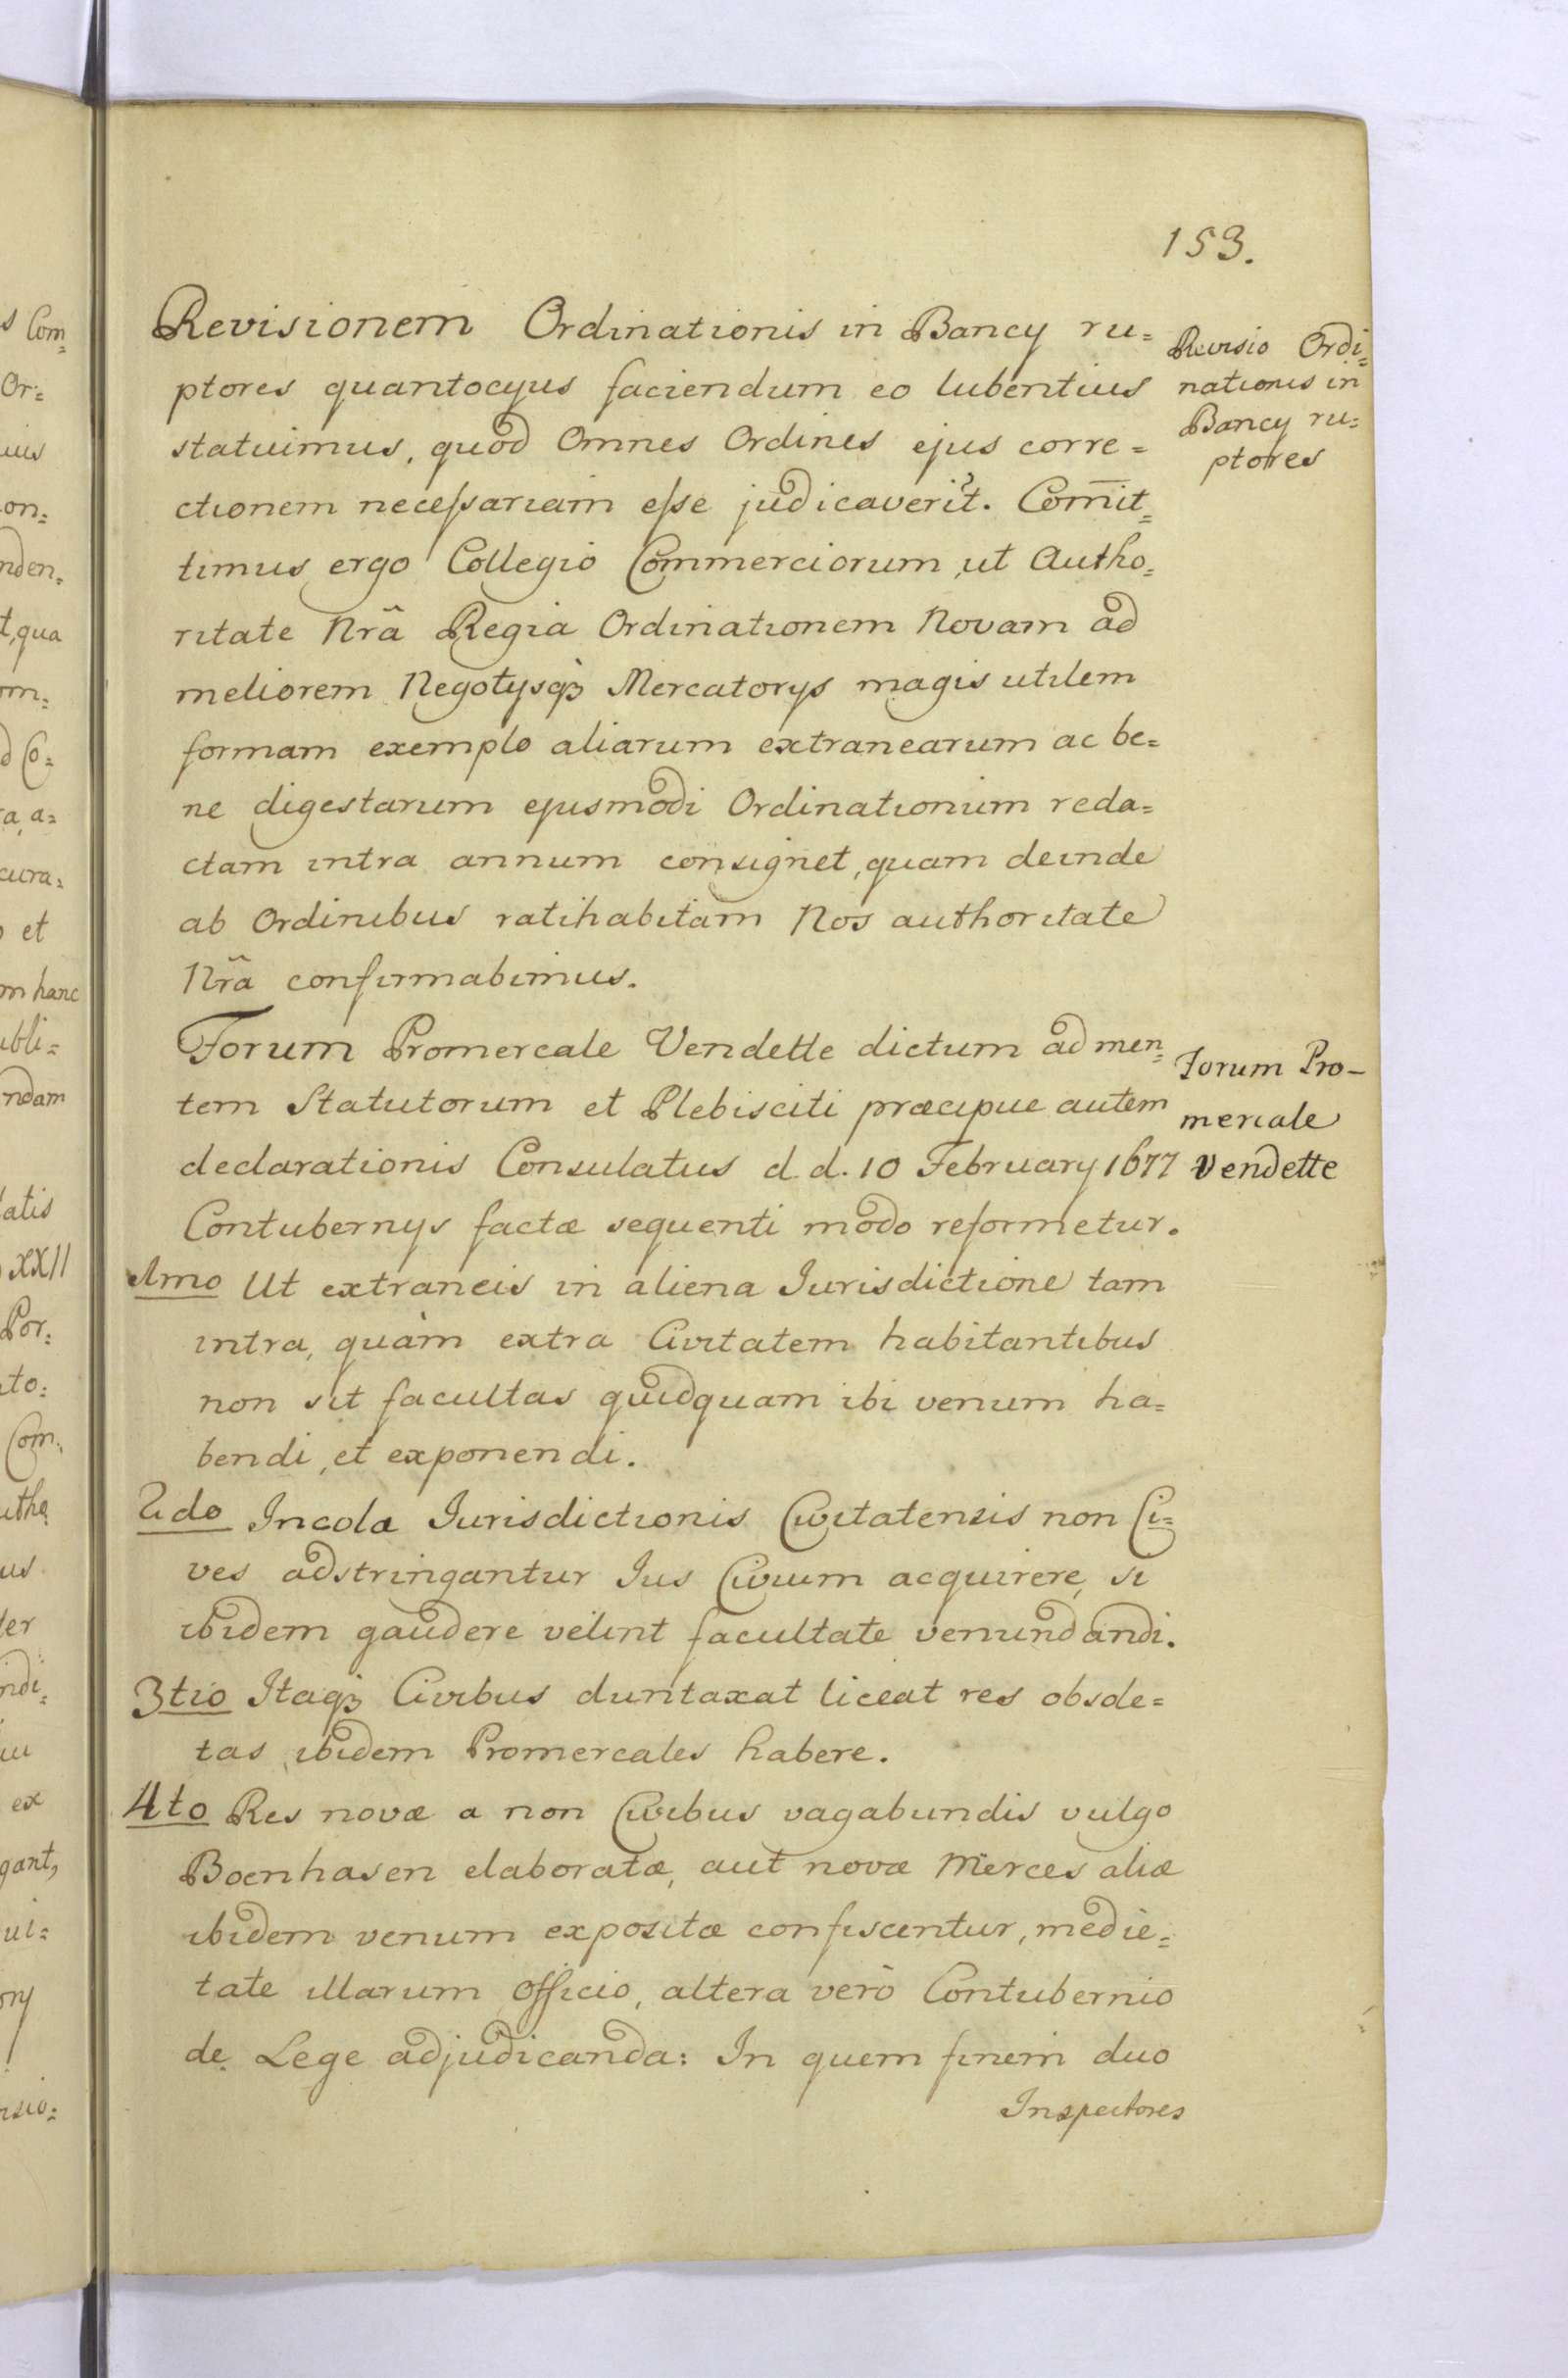 153.
Revisionem Ordinationis in Bancy ru=
ptores quantocyus faciendum eo lubentius
statuimus, quod Omnes Ordines ejus corre=
ctionem necessariam esse judicaverit. Com̄it=
timus ergo Collegio Commerciorum, ut Autho=
ritate Nrã Regia Ordinationem Novam ad
meliorem Negotysq́3 Mercatorys magis utilem
formam exemplo aliarum extranearum ac be=
ne digestarum ejusmodi Ordinationum reda=
ctam intra annum consignet, quam deinde
ab Ordinibus ratihabitam Nos authoritate
Nrã confirmabimus.
Revisio Ordi=
nationis in
Bancy ru=
ptores
Forum Promercale Vendette dictum ad men=
tem Statutorum et Plebisciti præcipue autem
declarationis Consulatus d. d. 10 February 1677
Contubernys factæ sequenti modo reformetur.
Forum Pro-
mercale
Vendette
1mo Ut extraneis in aliena Jurisdictione tam
intra, quàm extra Civitatem habitantibus
non sit facultas quidquam ibi venum ha=
bendi, et exponendi.
2do Incolæ Jurisdictionis Civitatensis non Ci=
ves adstringantur Jus Civium acquirere, si
ibidem gaudere velint facultate venundandi.
3tio Itaq3 Civibus duntaxat liceat res obsole=
tas ibidem Promercales habere.
4to Res novæ a non Civibus vagabundis vulgo
Boenhasen elaboratæ, aut novæ Merces aliæ
ibidem venum expositæ confiscentur, medie=
tate illarum Officio, altera verò Contubernio
de Lege adjudicanda: In quem finem duo
Inspectores
s Com=
Or=
uis
on=
nden=
t, qua
om=
d Co=
ra, a=
cura=
o et
m hanc
ubli=
ndam
atis
XXII
Por=
ito=
Com=
utho
us
ter
ndi=
iu
ex
gant,
ui=
ony
isio=